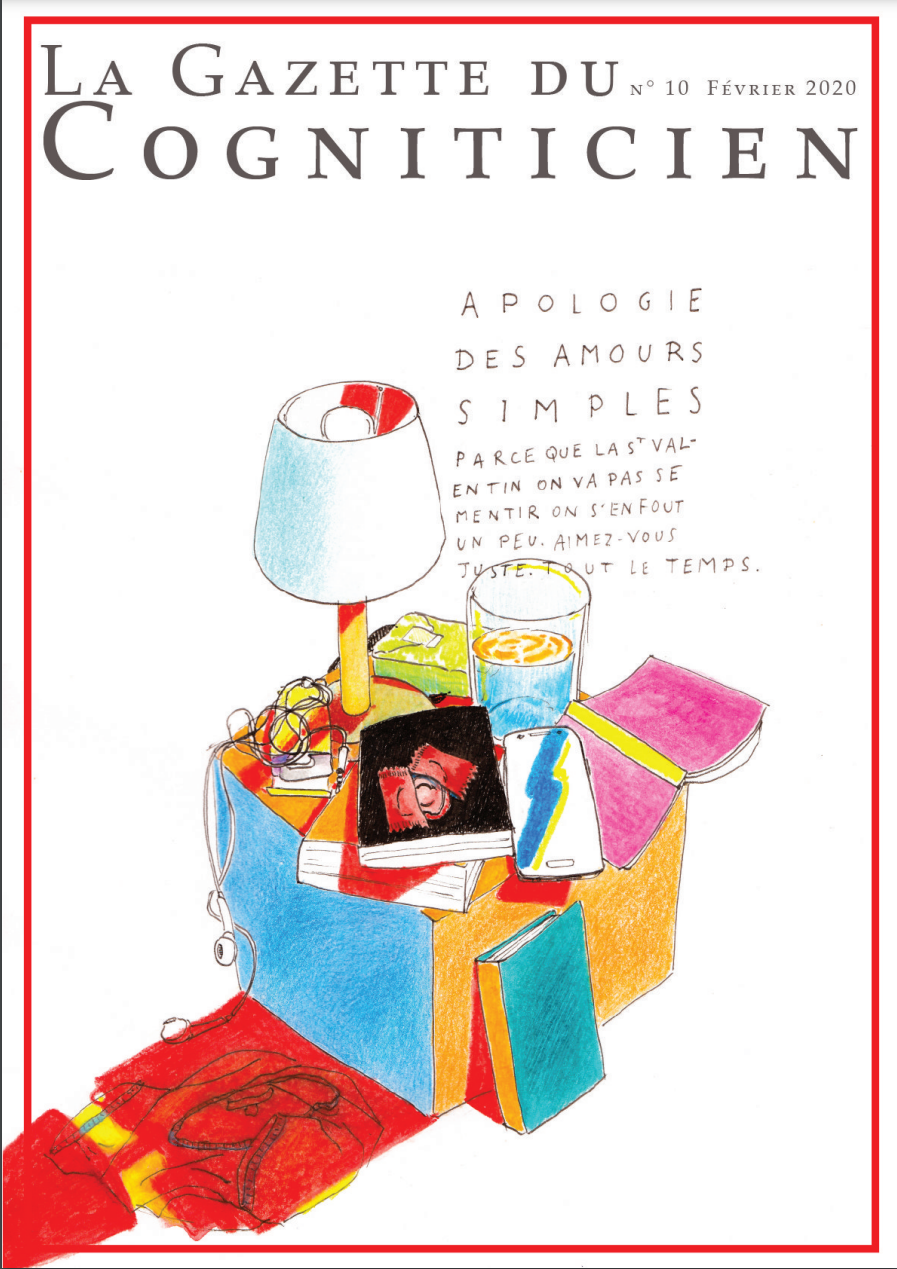 LA GAZETTE DU N° 10 FÉVRIER 2020
COGNITICIEN
APOLOGIE
DES AMOURS
SIMPLES
PARCE QUE LA ST VAL-
ENTIN ON VA PAS SE
MENTIR ON S'EN FOUT
UN PEU. AIMEZ-VOUS
JUSTE. TOUT LE TEMPS.